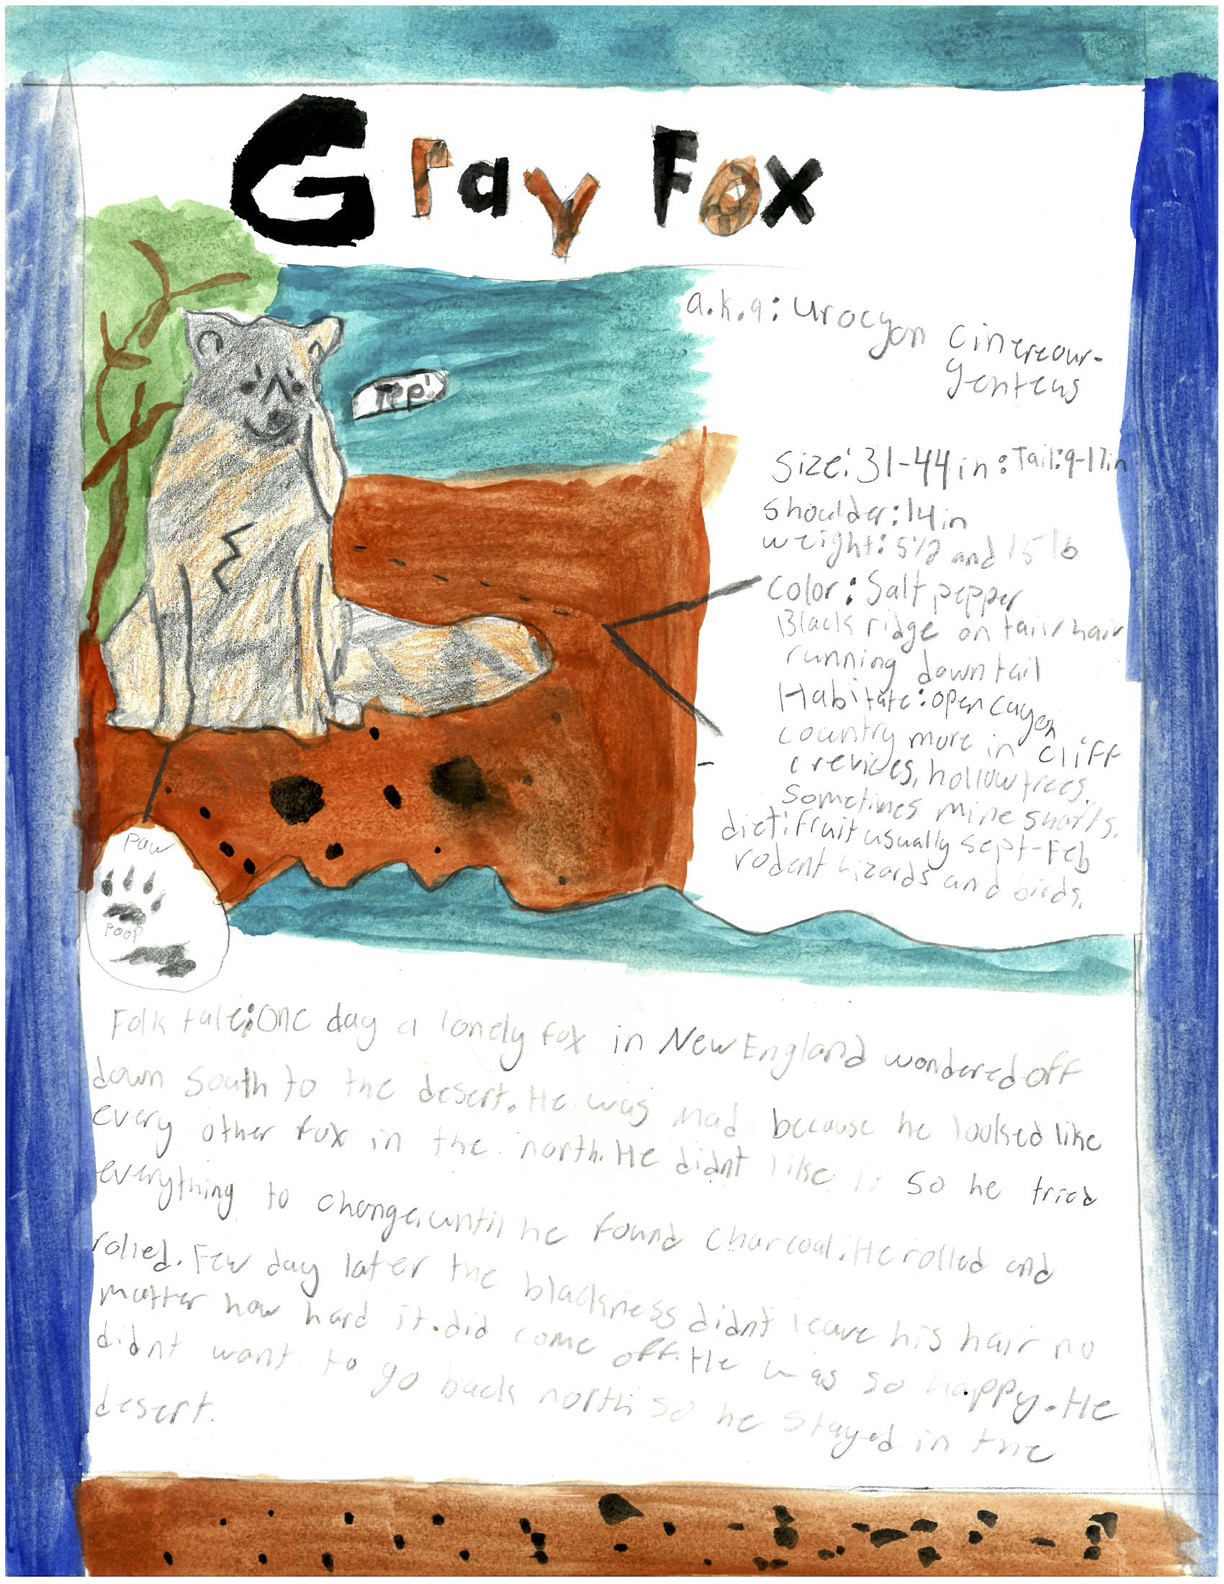 Gray Fox
a.k.a: Urocyon Cinereour-
genteus
Yep!
Size: 31-44in: Tail: 9-17in
Shoulder: 14in
weight: 5 1/2 and 15 lb
Color: Salt pepper
Black ridge on tail/hair
running down tail
Habitate: open
country more in cliff
crevices, hollow trees,
sometimes mine shafts.
diet: fruit usually Sept-Feb
rodent lizards and birds.
Paw
Poop
Folk tale: One day a lonely fox in New England wondered off
down South to the desert. He was mad because he looked like
every other fox in the north. He didnt like it so he tried
everything to change, until he found charcoal. He rolled and
rolled. Few day later the blackness didnt leave his hair no
matter how hard it. did come off. He was so happy. He
didnt want to go back north so he stayed in the
desert.